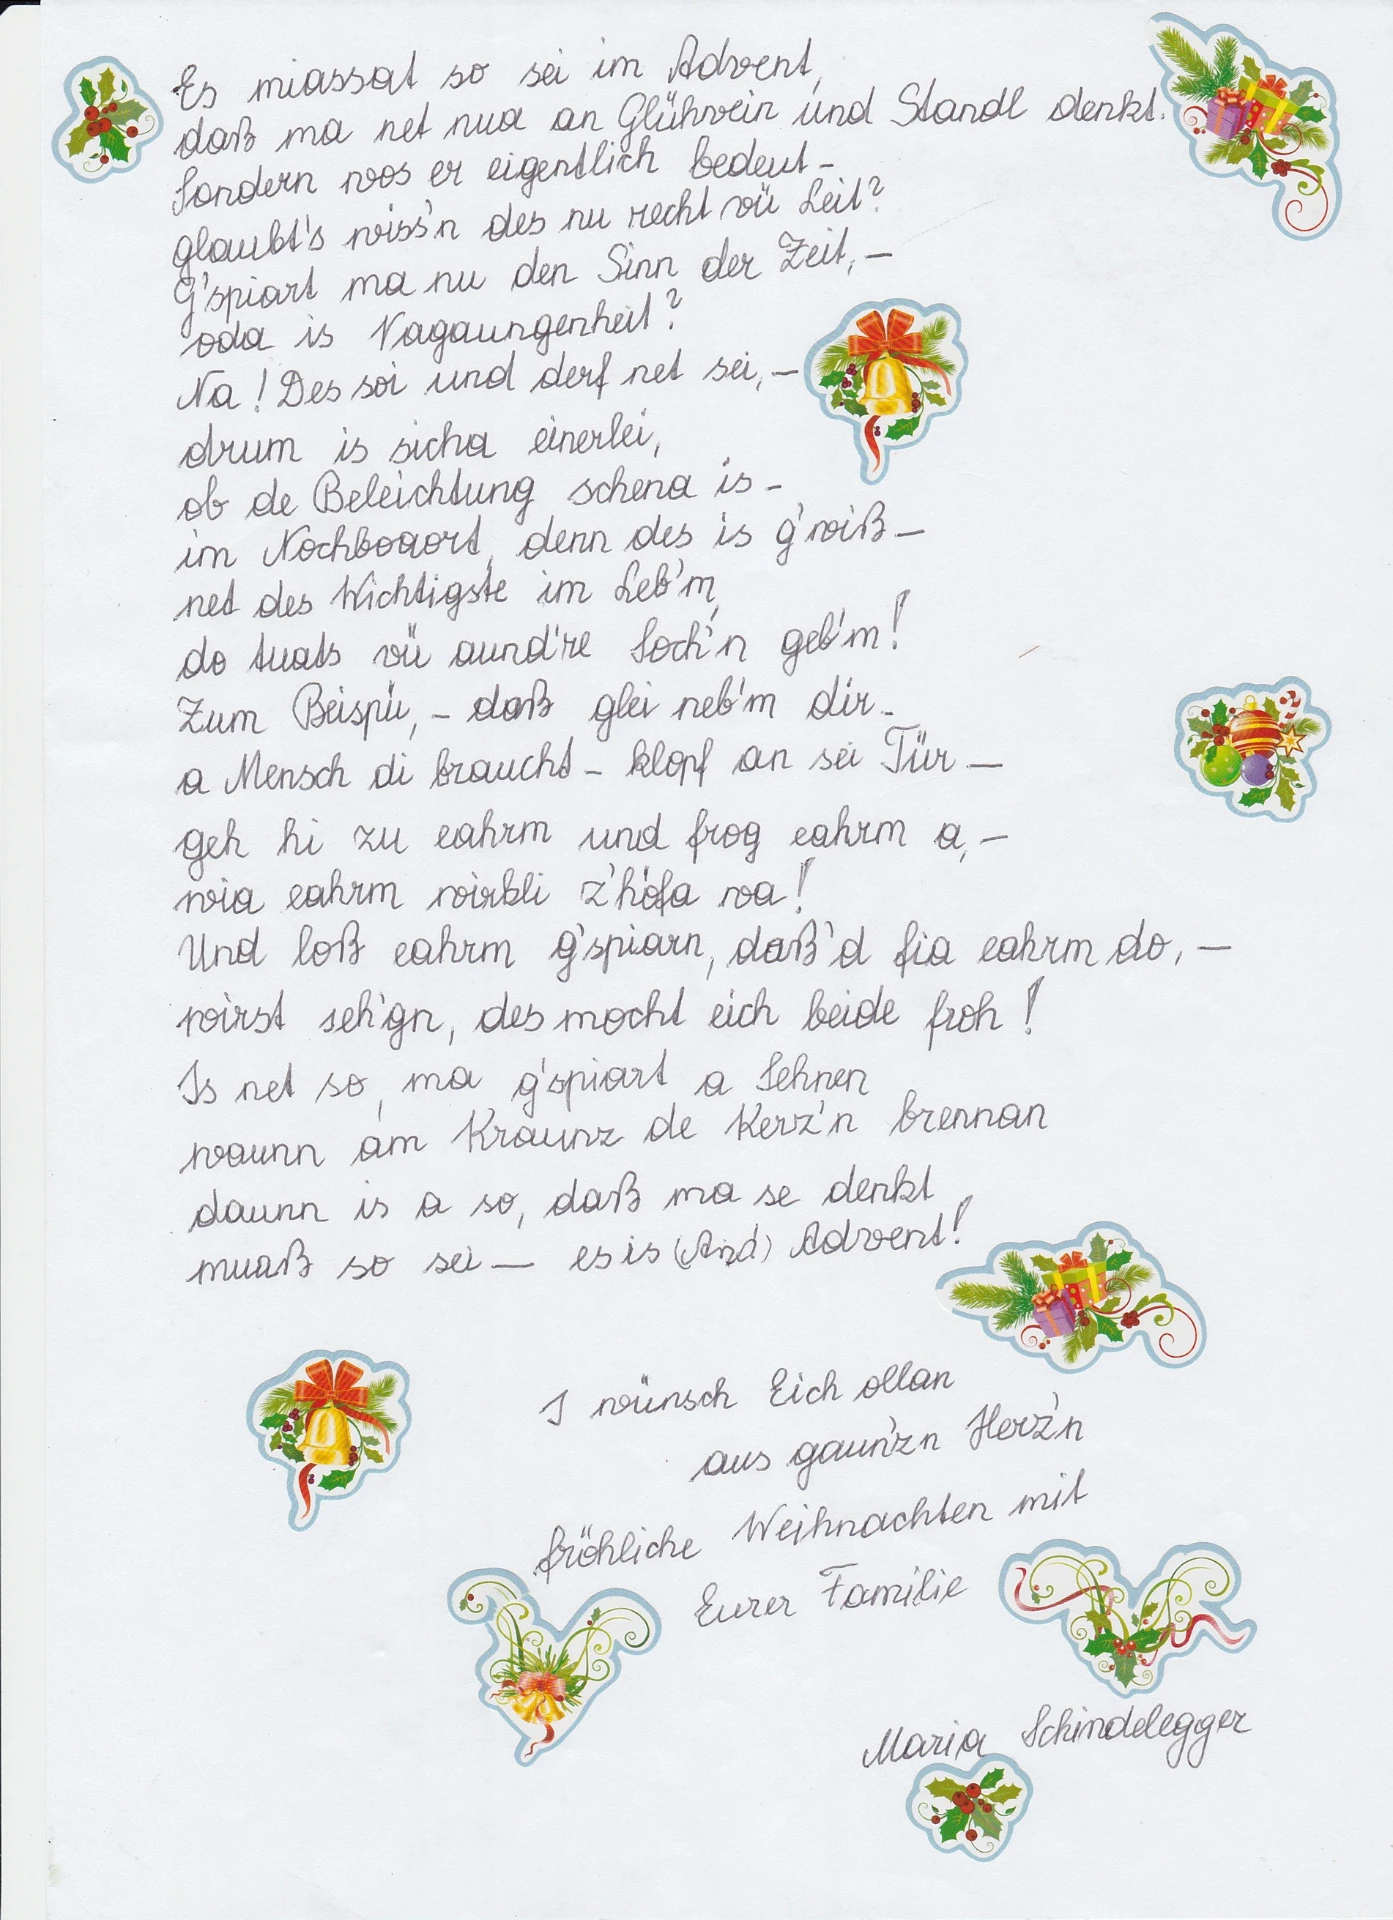 Es miassat so sei im Advent,
daß ma net nua an Glühwein und Standl denkt.
Sondern wos er eigentlich bedeut –
glaubt's wiss'n des nu recht vü Leit?
G'spiart ma nu den Sinn der Zeit, –
oda is Vagaungenheit?
Na! Des soi und derf net sei, –
drum is sicha einerlei,
ob de Beleichtung schena is –
im Nochboaort, denn des is g'wiß –
net des Wichtigste im Leb'm,
do tuats vü aund're Soch'n geb'm!
Zum Beispü, – daß glei neb'm dir –
a Mensch di braucht – klopf an sei Tür –
geh hi zu eahm und frog eahm a, –
wia eahm wirkli z'höfa wa!
Und loß eahm g'spiarn, daß'd fia eahm do, –
wirst seh'gn, des mocht eich beide froh!
Is net so, ma g'spiart a Sehnen
waunn am Kraunz de Kerz'n brennan
daunn is a so, daß ma se denkt
muaß so sei – es is Advent!
I wünsch Eich ollan
aus gaunz'n Herz'n
fröhliche Weihnachten mit
Eurer Familie
Maria Schindelegger